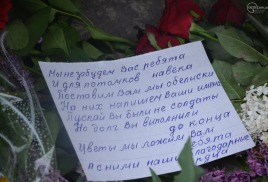 Мы не забудем Вас ребята
И для потомков навека
Поставим Вам мы обелиски
На них напишем Ваши имена
Пускай Вы были не солдаты
Но долг Вы выполнили
до конца
Цветы мы ложим Вам
ребята
А с ними наши благодарные
сердца